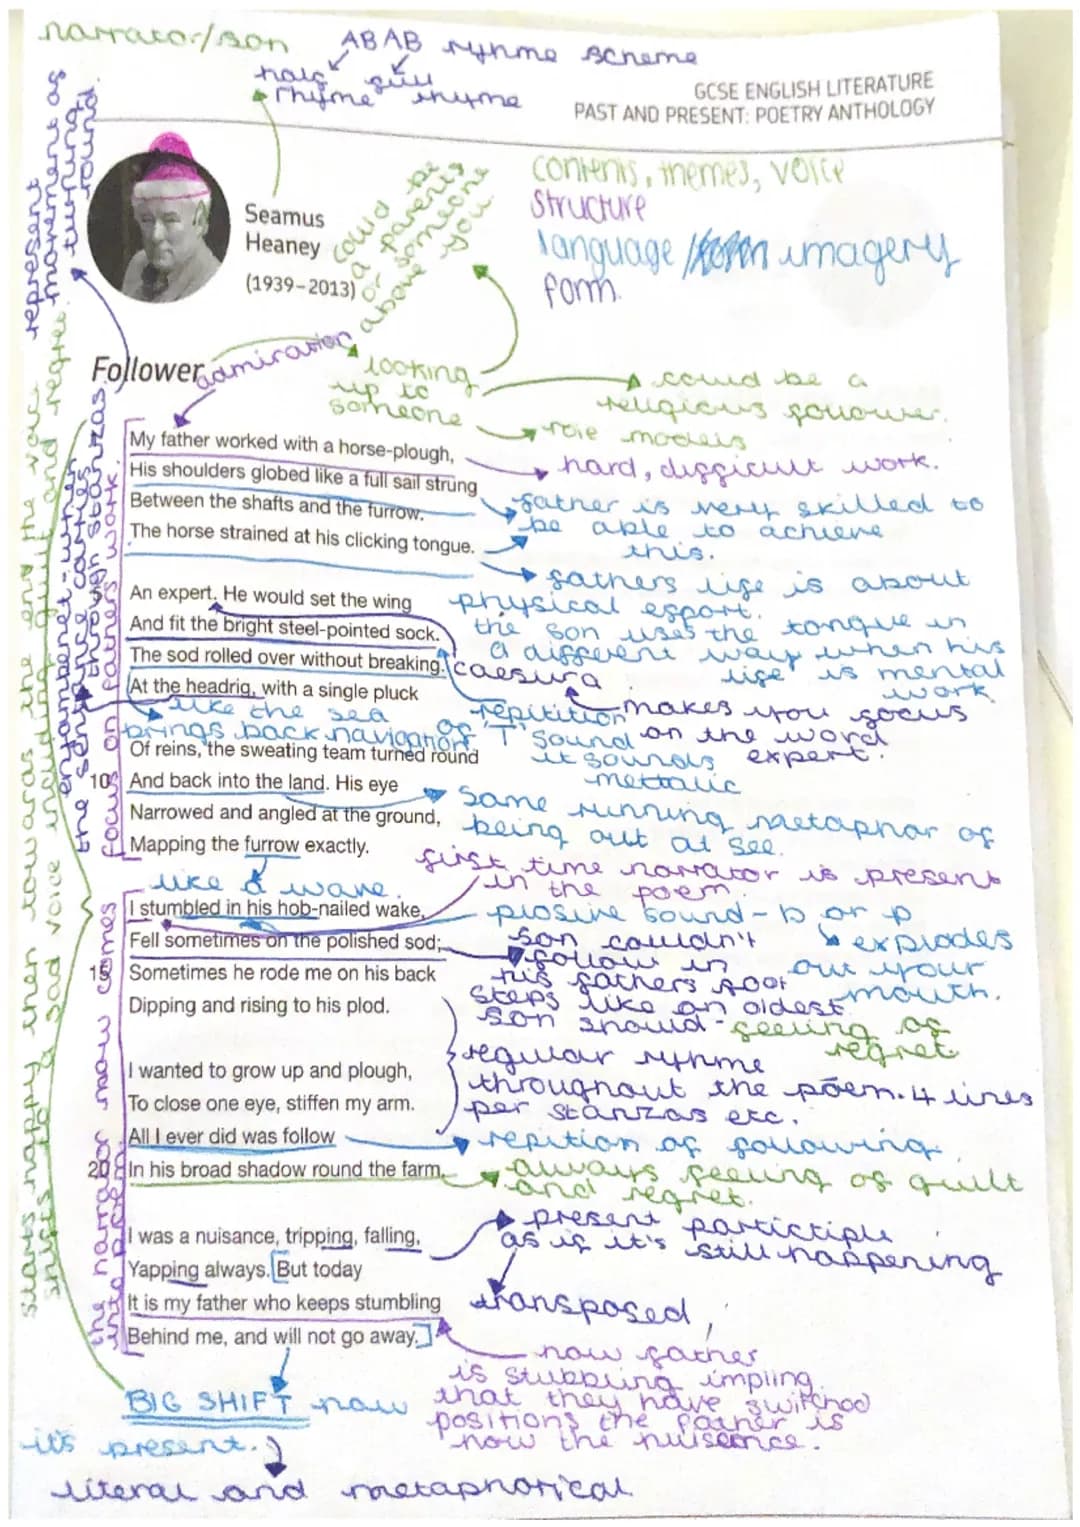 narrator/son
ABAB ryhme scheme
half rhyme
full rhyme
GCSE ENGLISH LITERATURE
PAST AND PRESENT: POETRY ANTHOLOGY
represent movement of turning round.
contents, themes, voice
structure
language / imagery
form.
Seamus
Heaney
(1939–2013)
could be
a parents
or someone
above you
admiration
Follower
looking
up to
someone
could be a
religious follower.
role models
My father worked with a horse-plough,
hard, difficult work.
His shoulders globed like a full sail strung
Between the shafts and the furrow.
father is very skilled to
be able to achieve
this.
The horse strained at his clicking tongue.
fathers life is about
physical effort.
the son uses the tongue in
a different way when his
life is mental
work
An expert. He would set the wing
And fit the bright steel-pointed sock.
The sod rolled over without breaking.
caesura
makes you focus
on the word
expert.
At the headrig, with a single pluck
like the sea
brings back navigation
repitition
of 'T' sound
it sounds
mettalic
Of reins, the sweating team turned round
10 And back into the land. His eye
same running metaphor of
being out at see.
Narrowed and angled at the ground,
Mapping the furrow exactly.
like a wave.
first time narrator is present
in the poem.
I stumbled in his hob-nailed wake,
plosive sound - b or p
explodes
out your
mouth.
Fell sometimes on the polished sod;
son couldn't
follow in
his fathers foot
steps like an oldest
son should - feeling of
regret
15 Sometimes he rode me on his back
Dipping and rising to his plod.
regular ryhme
throughout the poem. 4 lines
per stanzas etc.
I wanted to grow up and plough,
To close one eye, stiffen my arm.
All I ever did was follow
repition of following.
20 In his broad shadow round the farm.
always feeling of guilt
and regret.
I was a nuisance, tripping, falling,
present partictiple
as if it's still happening
Yapping always. But today
It is my father who keeps stumbling
transposed
Behind me, and will not go away.
now father
is stubbling impling
that they have switched
positions the father is
now the nuisence.
BIG SHIFT now
it's present.
literal and metaphorical
the enjambenet - when
the sentence carries
through stanzas
focus on fathers work.
the narrator now comes
into poem
starts happy then towards the end the voice
shifts to a sad voice including guilt and regret.